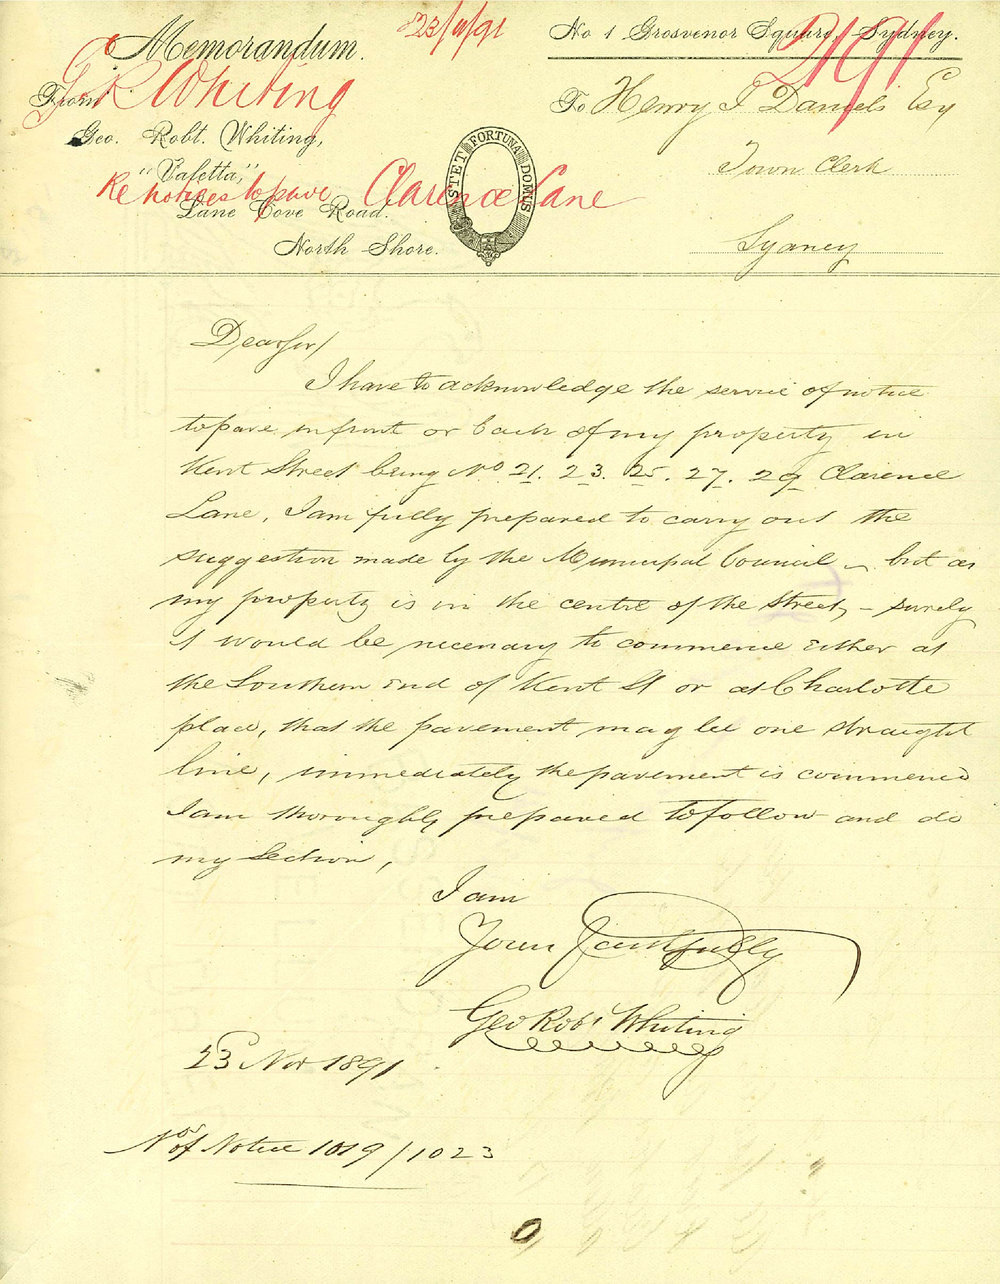 23/11/91
Memorandum.
No 1 Grosvenor Square, Sydney.
2191
G. R. Whiting
From
Geo. Robt. Whiting,
"Valetta,"
Lane Cove Road.
North Shore.
To Henry J Daniels Esq
Town Clerk
Sydney
Re notices to pave Clarence Lane
STET FORTUNA DOMUS
Dear Sir/
I have to acknowledge the service of notice
to pave in front or back of my property in
Kent Street being No 21. 23. 25. 27. 29 Clarence
Lane, I am fully prepared to carry out the
suggestion made by the Municipal Council – but as
my property is in the centre of the Street, – surely
it would be necessary to commence either at
the Southern End of Kent St or at Charlotte
place, that the pavement may be one straight
line, immediately the pavement is commenced
I am thoroughly prepared to follow and do
my Section,
I am
Yours faithfully
Geo Robt Whiting
23 Nov 1891
Nos of Notice 1019/1023